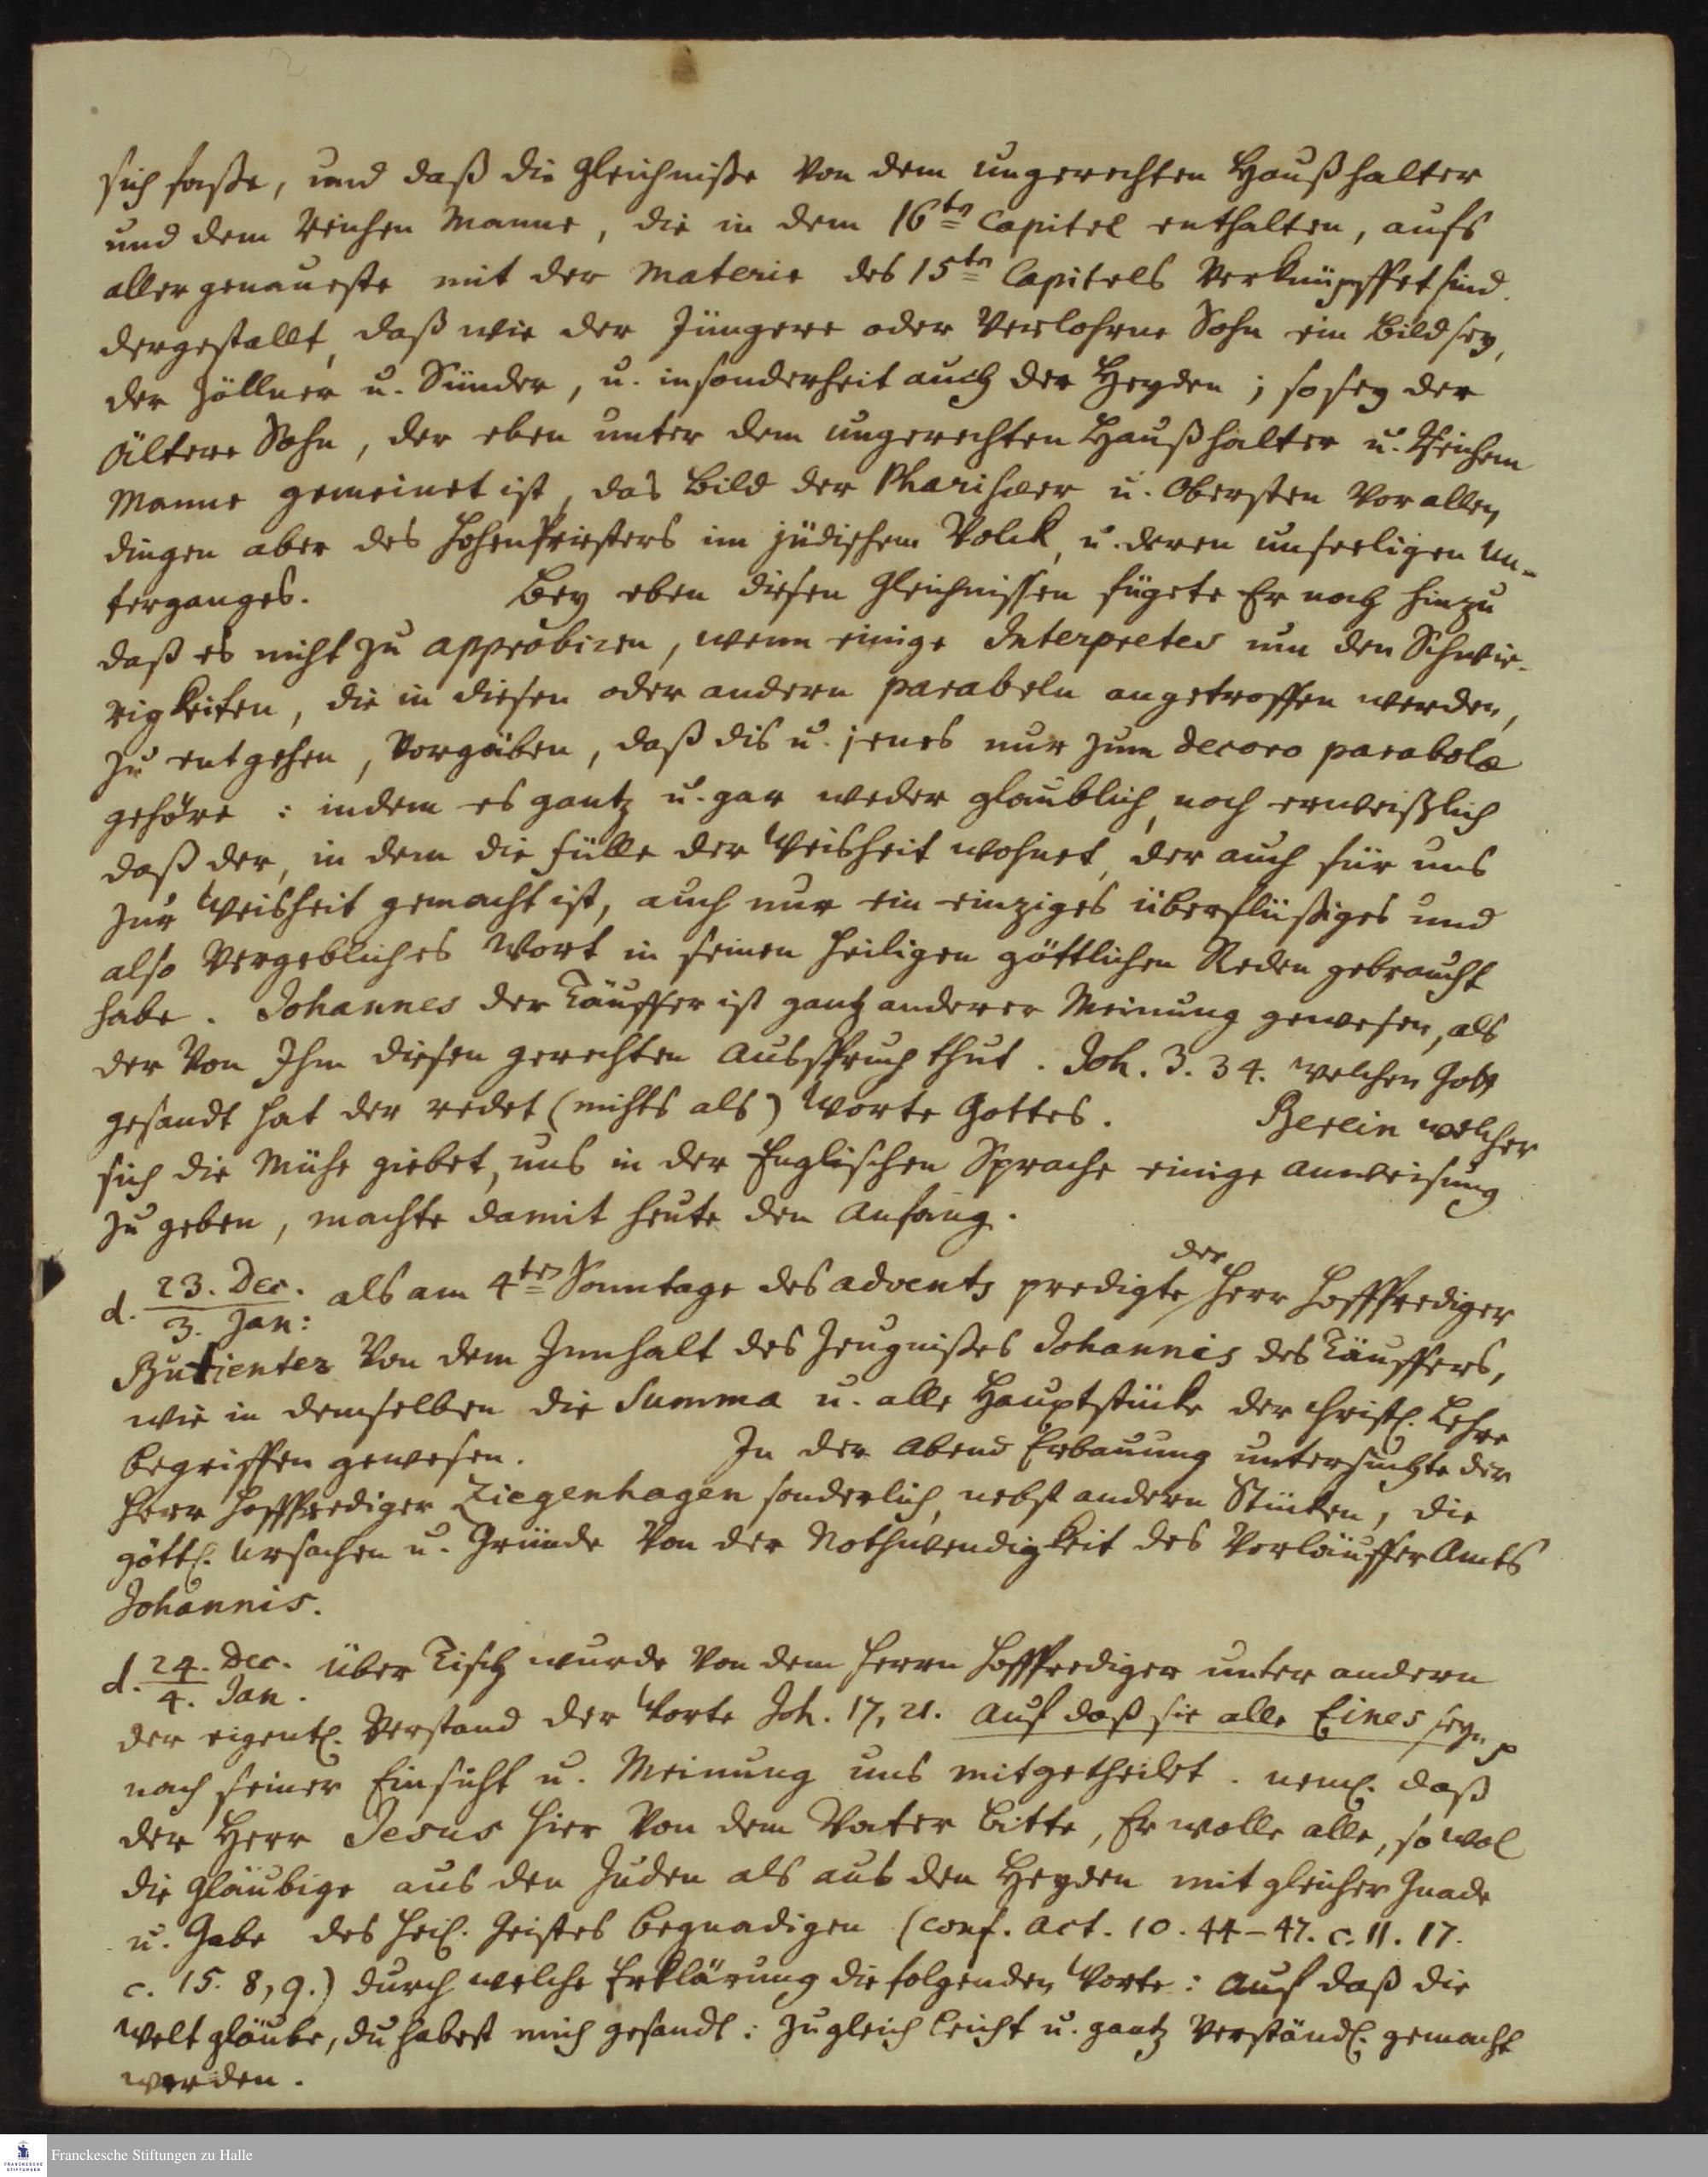 sich fasse, und daß die Gleichniße von dem ungerechten Haußhalter
und dem Reichen Manne, die in dem 16ten Capitel enthalten, aufs
allergenaueste mit der Materie des 15ten Capitels verknüpffet sind.
dergestallt, daß wie der Jüngere oder Verlohrne Sohn ein Bild sey,
der Zöllner u. Sünder, u. insonderheit auch der Heyden; so sey der
Ältere Sohn, der eben unter dem ungerechten Haußhalter u. Reichem
Manne gemeinet ist, das Bild der Pharisæer u. Obersten vor allen
dingen aber des Hohenpriesters im jüdischem Volck, u. deren unseeligen Un-
terganges. Bey eben diesen Gleichnissen fügete Er noch hinzu
daß es nicht zu approbiren, wenn einige Interpretes um den Schwie-
rigkeiten, die in diesen oder andern parabeln angetroffen werden,
zu entgehen, vorgäben, daß dis u. jenes nur zum decoro parabolæ
gehöre: indem es gantz u. gar weder glaublich, noch erweißlich
daß der, in dem die Fülle der Weisheit wohnet, der auch für uns
zur Weisheit gemacht ist, auch nur ein einziges überflüßiges und
also vergebliches Wort in seinen heiligen göttlichen Reden gebraucht
habe. Johannes der Täuffer ist gantz anderer Meinung gewesen, als
der von Ihm diesen gerechten Ausspruch thut. Joh. 3. 34. welchen Gott
gesandt hat der redet (nichts als) Worte Gottes. Berein welcher
sich die Mühe giebet, uns in der Englischen Sprache einige anweisung
zu geben, machte damit heute den Anfang.
d. 23. Dec. / 3. Jan: als am 4ten Sonntage des advents predigte der Herr Hoffprediger
Butienter von dem Innhalt des Zeugnißes Johannis des Täuffers,
wie in demselben die Summa u. alle Hauptstücke der Christl. Lehre
begriffen gewesen. In der Abend Erbauung untersuchte der
Herr Hoffprediger Ziegenhagen sonderlich, nebst andern Stücken, die
göttl. Ursachen u. Gründe von der Nothwendigkeit des Vorläuffer Amts
Johannis.
d. 24. Dec. / 4. Jan. über Tisch wurde von dem Herrn Hoffprediger unter andern
der eigentl. Verstand der Worte Joh. 17, 21. Auf daß sie alle Eines seyn p
nach seiner Einsicht u. Meinung uns mitgetheilet. neml. daß
der Herr Jesus hier von dem Vater bitte, Er wolle alle, so wol
die Gläubige aus den Juden als aus den Heyden mit gleicher Gnade
u. Gabe des heil. Geistes begnadigen (conf. Act. 10. 44-47. c. 11. 17.
c. 15. 8, 9.) durch welche Erklärung die folgenden Worte: Auf daß die
Welt gläube, du habest mich gesandt: zugleich leicht u. gantz verständl. gemacht
worden.
Franckesche Stiftungen zu Halle
FRANCKESCHE STIFTUNGEN